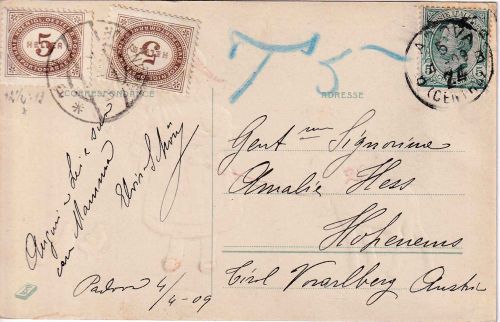 5
HELLER
5
T 5
PADOVA
(CENTRO)
CORRESPONDANCE
ADRESSE
Auguri a Lei e sua
cara Mamma
Elvira Schön
Padova 4/4-09
Gent ma Signorina
Amalie Hess
Hohenems
Tirol Vorarlberg Austria